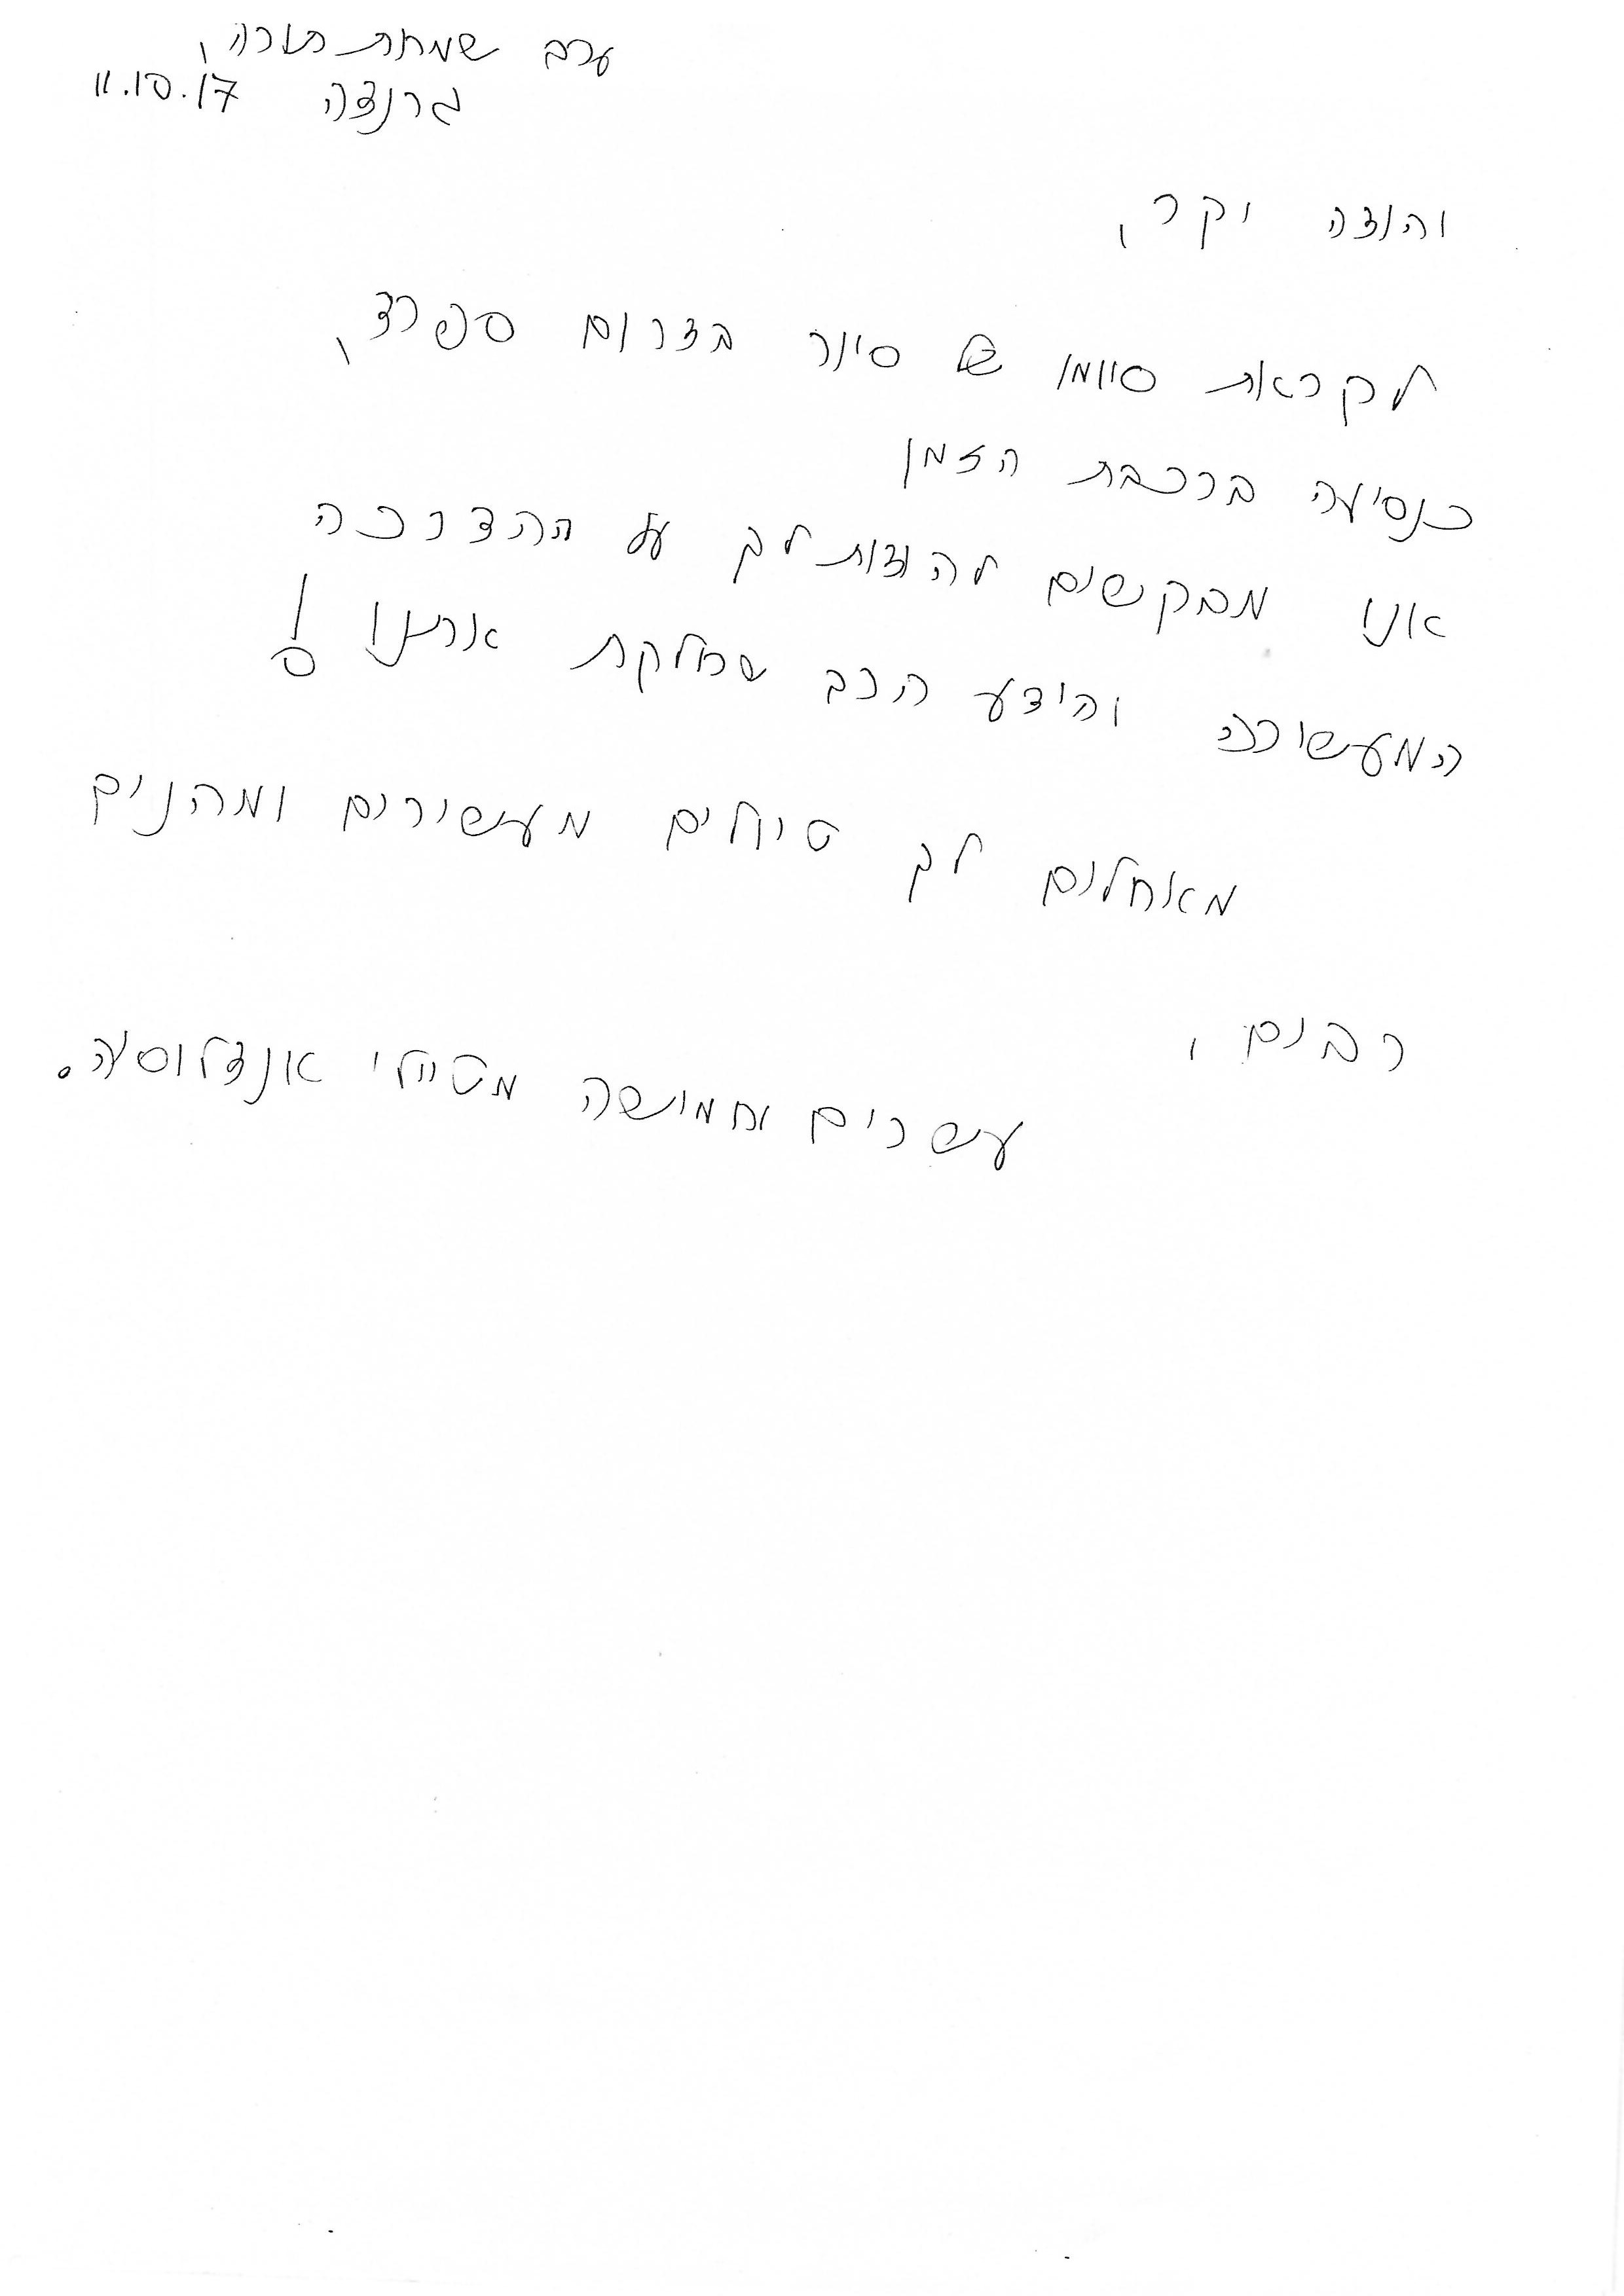 ערב שמחת תורה,
גרנדה 11.10.17
יהודה יקר,
לקראת סיומו של סיור בדרום ספרד,
כנסיעה ברכבת הזמן
אנו מבקשים להודות לך על ההדרכה
המעשירה והידע הרב שחלקת איתנו!
מאחלים לך טיולים מעשירים ומהנים
רבים,
עשרים וחמישה מטיילי אנדלוסיה.